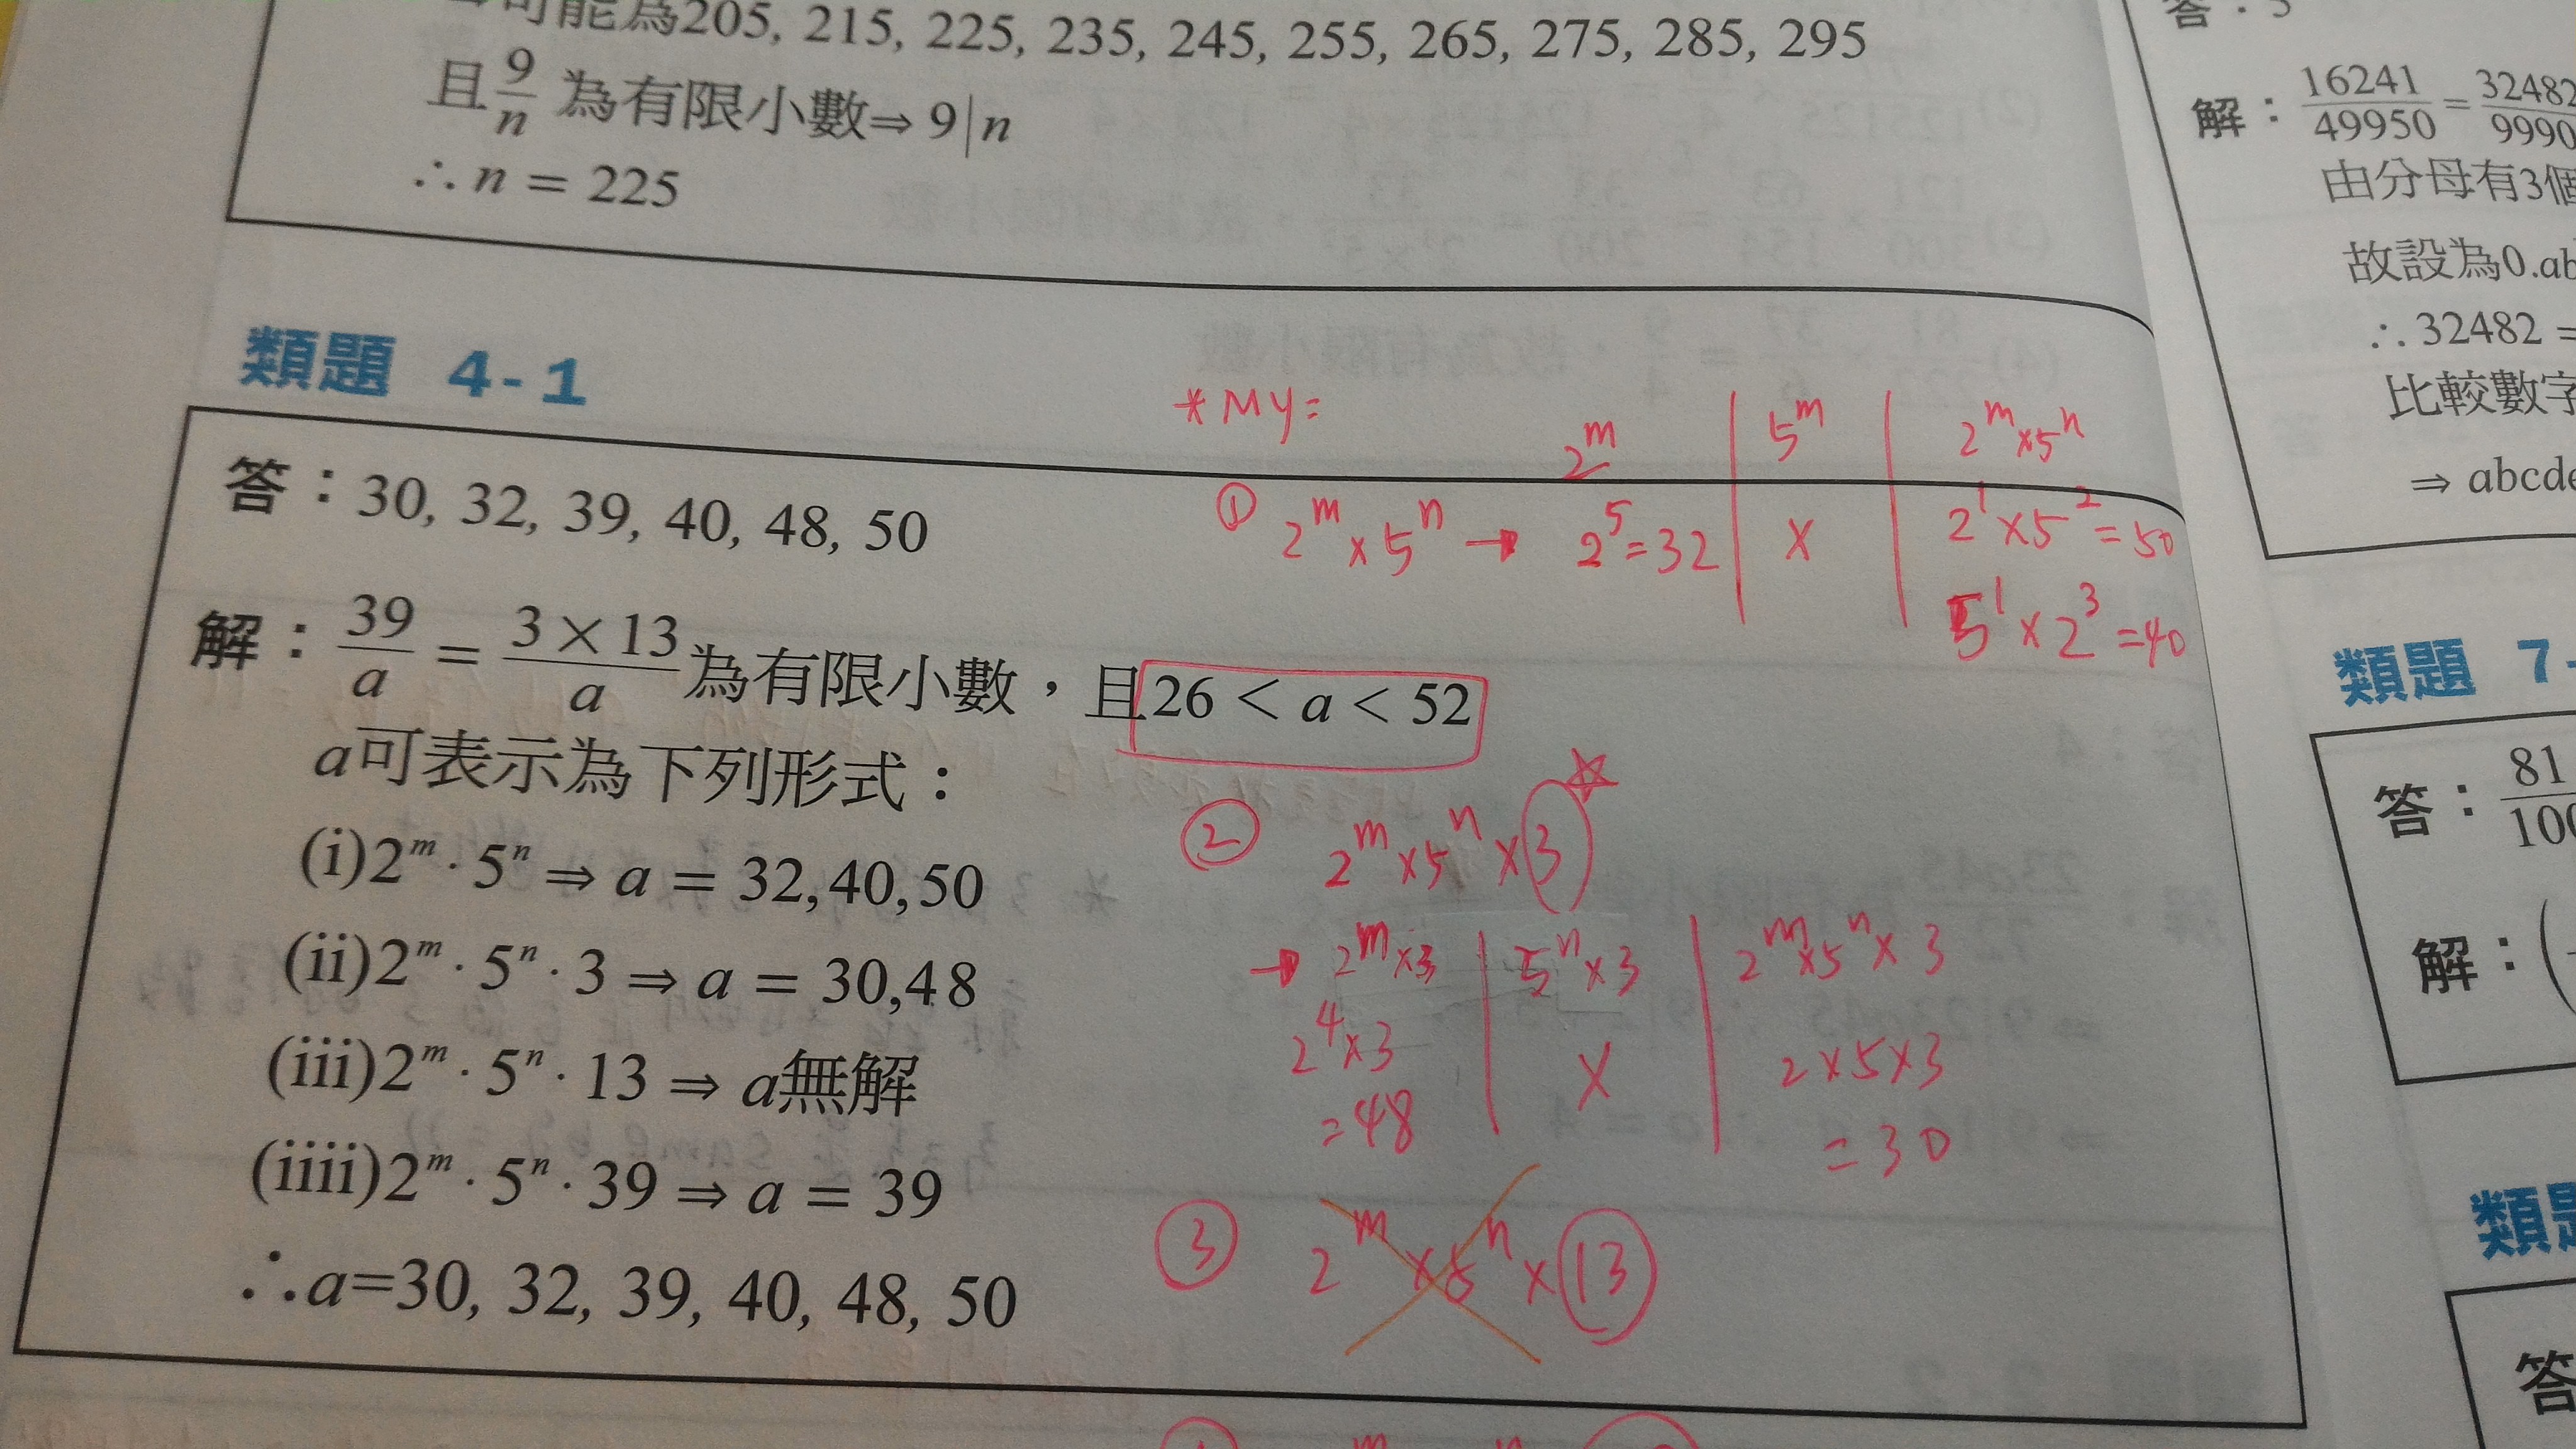 可能為205, 215, 225, 235, 245, 255, 265, 275, 285, 295
且9/n 為有限小數⇒ 9|n
∴ n = 225
類題 4-1
答：30, 32, 39, 40, 48, 50
解：39/a = 3×13/a 為有限小數，且26 < a < 52
a可表示為下列形式：
(i)2^m · 5^n ⇒ a = 32,40,50
(ii)2^m · 5^n · 3 ⇒ a = 30,48
(iii)2^m · 5^n · 13 ⇒ a無解
(iiii)2^m · 5^n · 39 ⇒ a = 39
∴a=30, 32, 39, 40, 48, 50
*My:
2^m | 5^m | 2^m×5^n
① 2^m×5^n → 2^5=32 | × | 2^1×5^2=50
5^1×2^3=40
② 2^m×5^n×3
→ 2^m×3 | 5^n×3 | 2^m×5^n×3
2^4×3 | × | 2×5×3
=48
=30
③ 2^m×5^n×13
答：5
解：16241/49950 = 32482
由分母有3個
故設為0.ab
∴ 32482 =
比較數字
⇒ abcde
類題 7-
答：81
解：(
類題
答